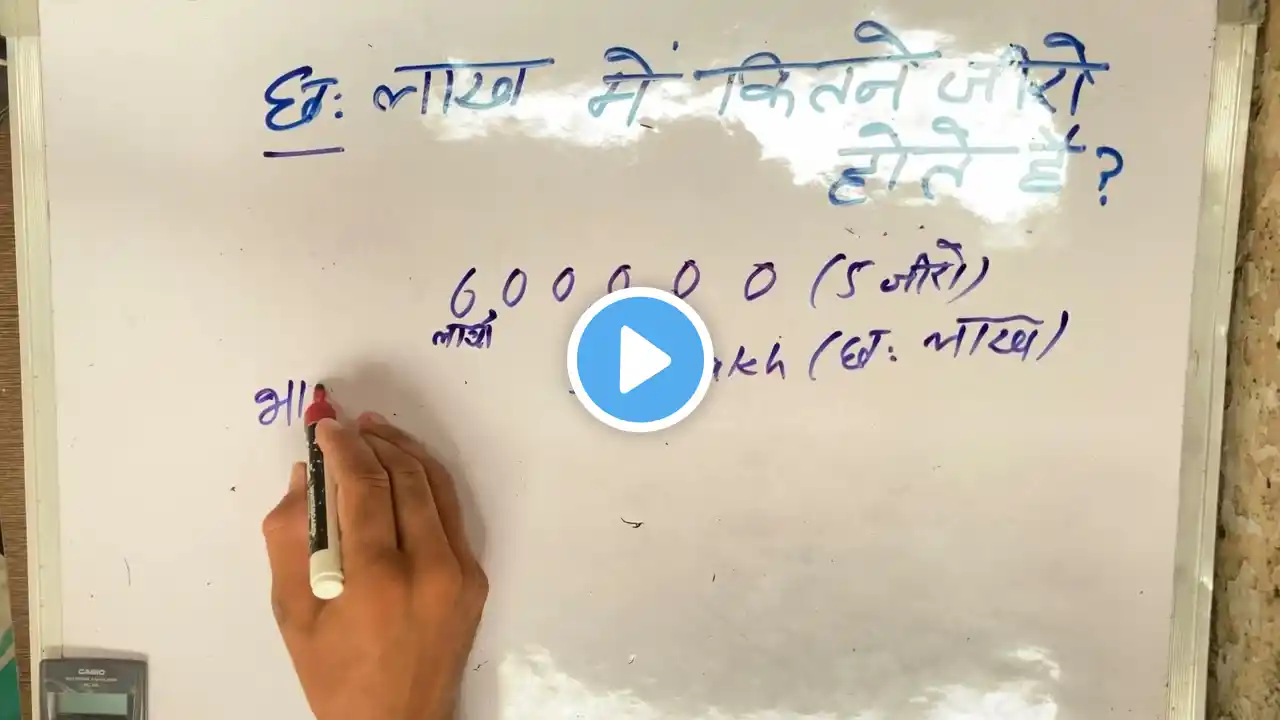 छः लाख में कितने जीरो
होते हैं?
6 0 0 0 0 0 (5 जीरो)
लाख
(छः लाख)
भा
CASIO